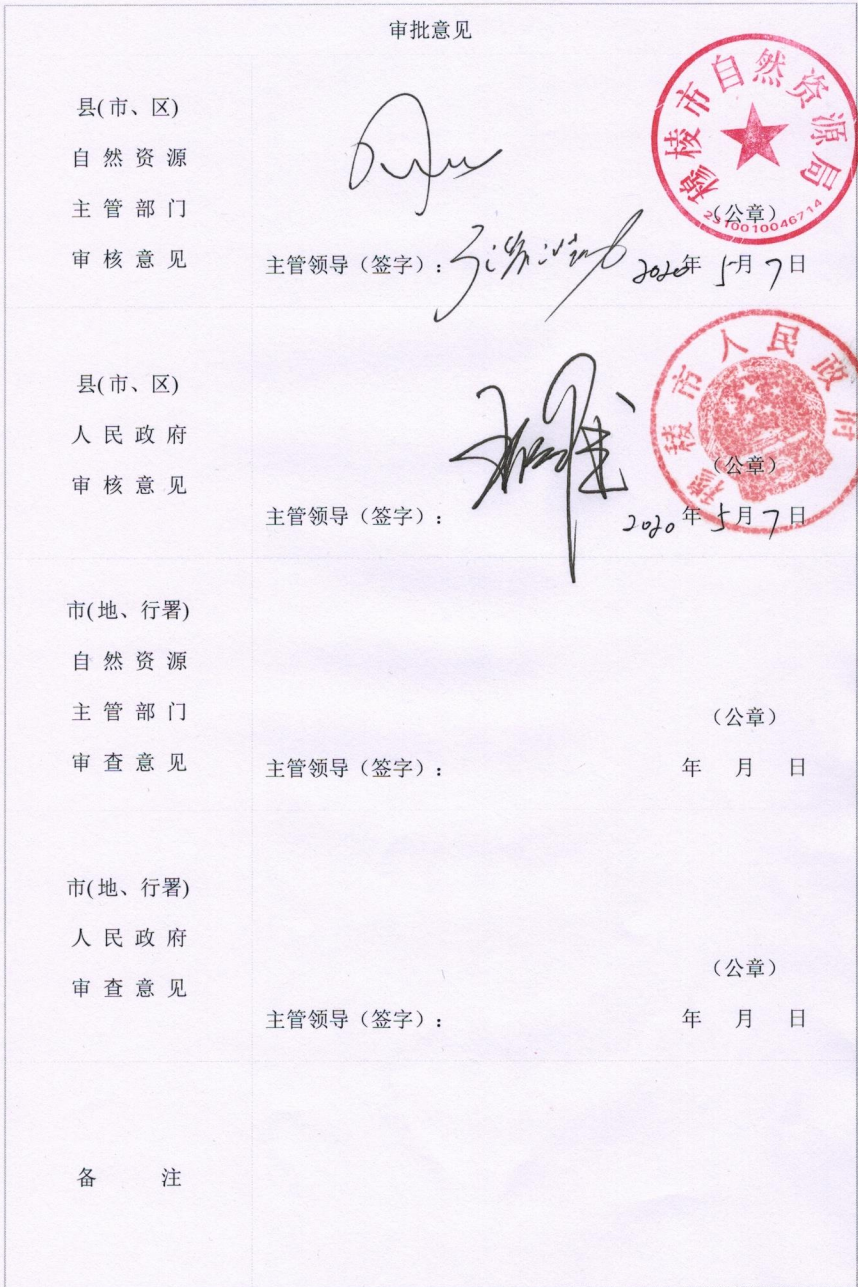 审批意见
县(市、区)
自然资源
主管部门
审核意见
穆棱市自然资源局
2310010046714
(公章)
主管领导(签字):
2020年5月7日
县(市、区)
人民政府
审核意见
穆棱市人民政府
(公章)
主管领导(签字):
2020年5月7日
市(地、行署)
自然资源
主管部门
审查意见
(公章)
主管领导(签字):
年 月 日
市(地、行署)
人民政府
审查意见
(公章)
主管领导(签字):
年 月 日
备 注